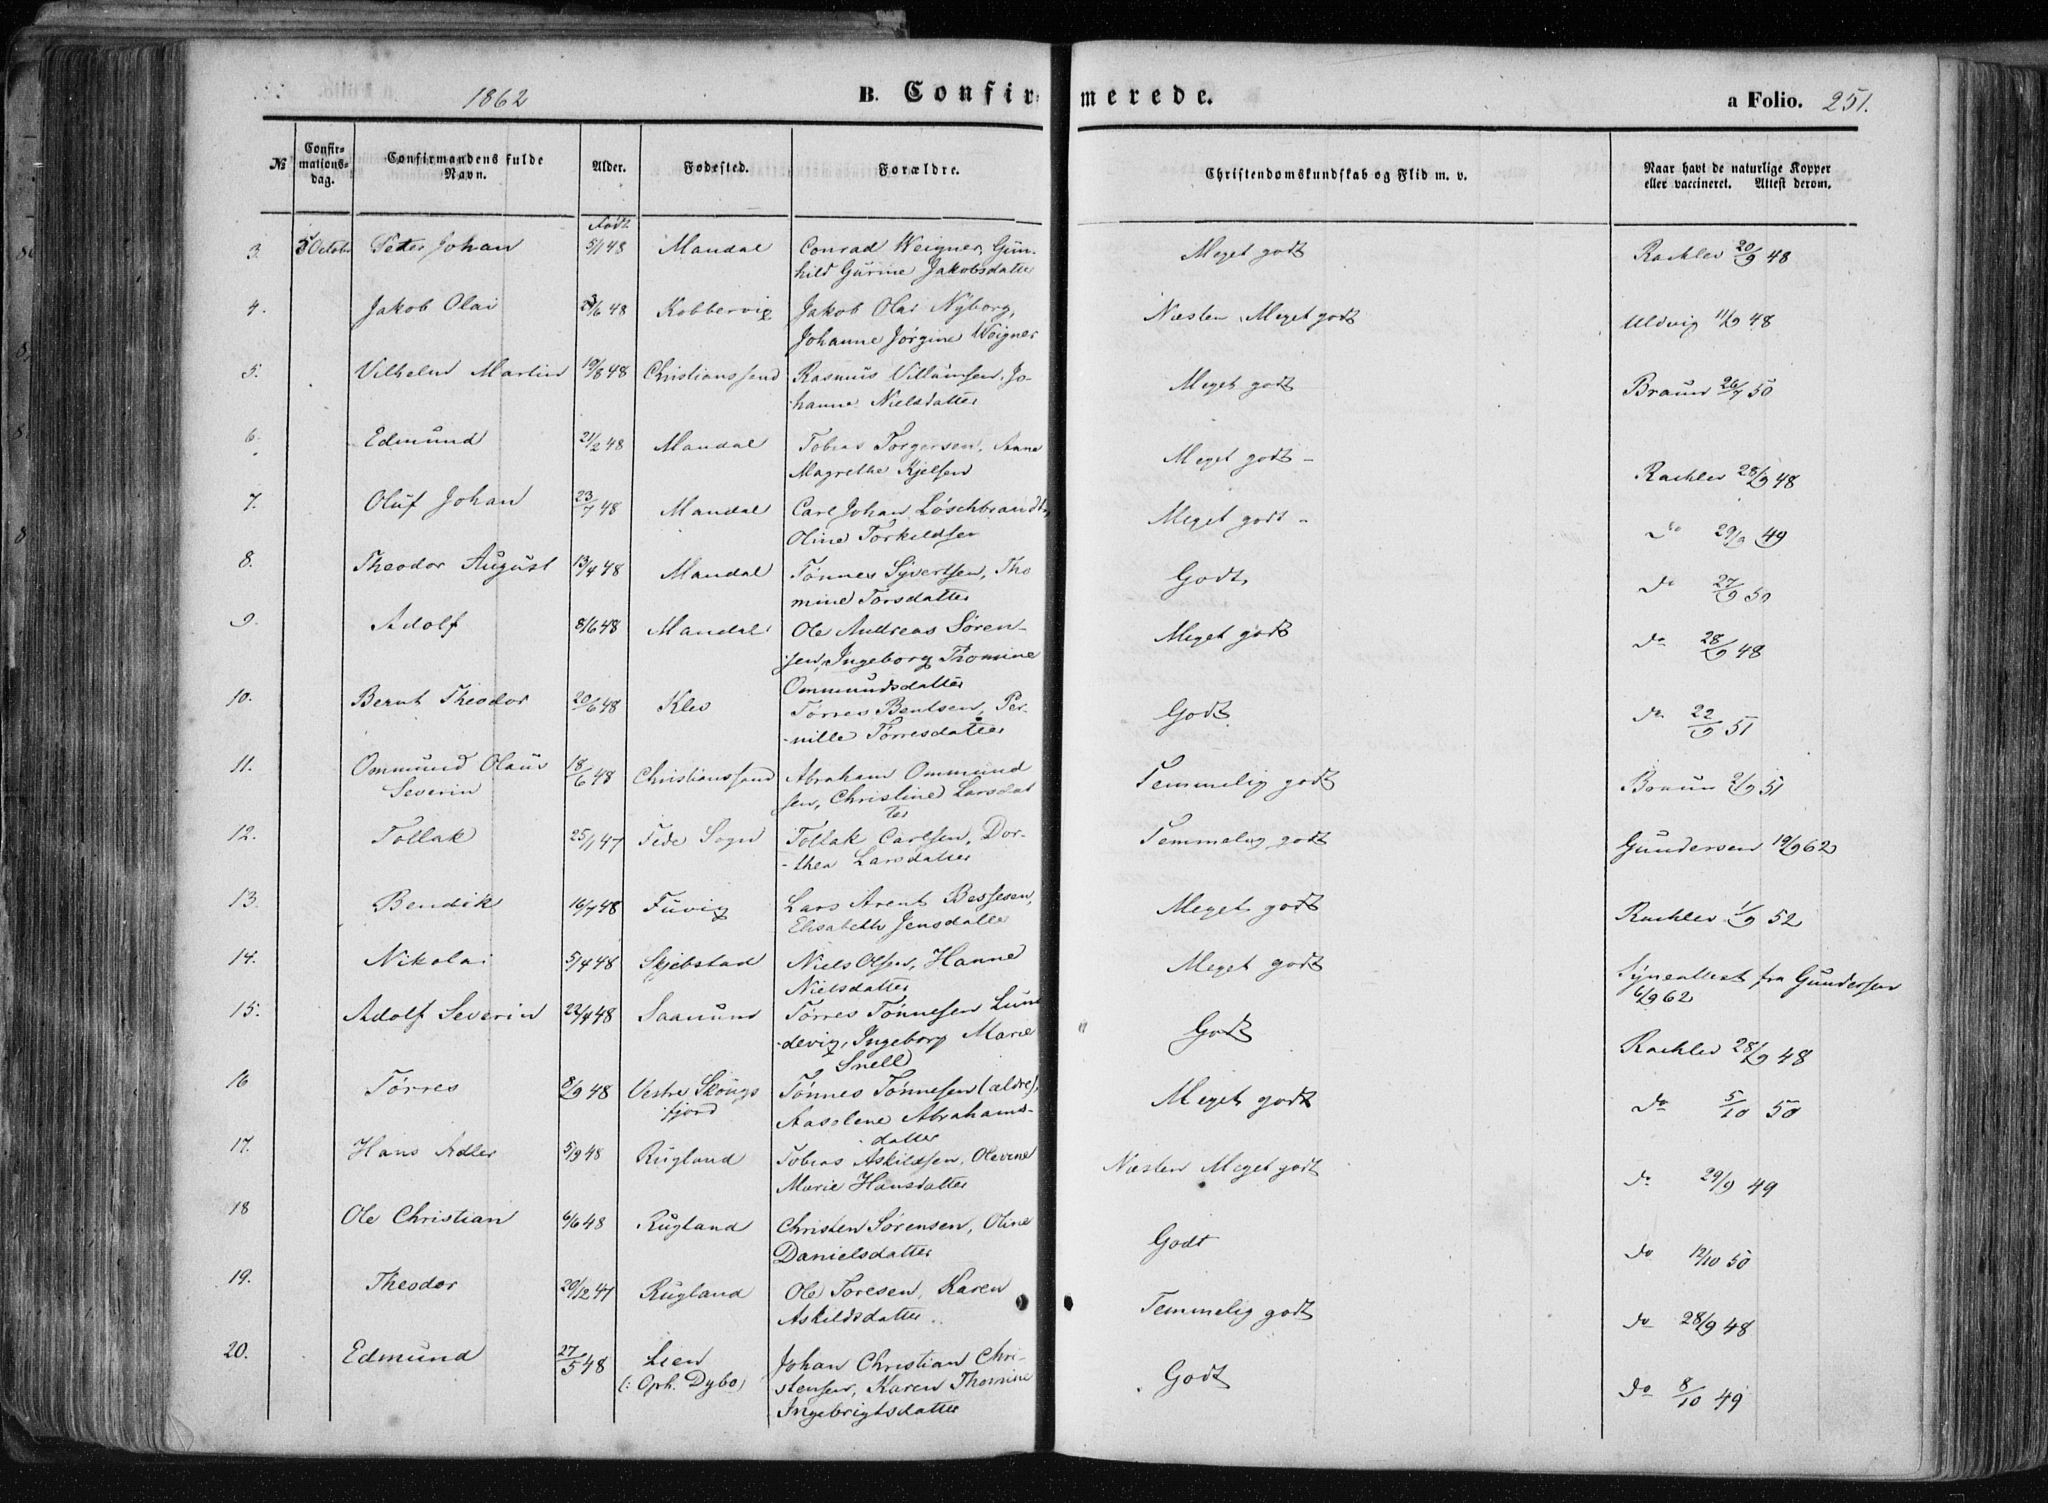 1862 B. Confirmerede. a Folio. 251.
№ Confirmationsdag. Confirmandens fulde Navn. Alder. Fødested. Forældre. Christendomskundskab og Flid m. v. Naar havt de naturlige Kopper eller vaccineret. Attest derom.
Født
3. 5 Octobr Peder Johan 5/1 48 Mandal Conrad Weigner, Gun- Meget godt Rachlev 20/9 48
hild Gurine Jakobsdatter
4. Jakob Olai 23/6 48 Kobbervig Jakob Olai Nyborg, Næsten Meget godt Uldvig 11/9 48
Johanne Jørgine Weigner
5. Vilhelm Martin 19/8 48 Christianssand Rasmus Villumsen, Jo- Meget godt Braun 26/7 50
hanne Nielsdatter
6. Edmund 21/2 48 Mandal Tobias Torgersen, Anna Meget godt - Rachlev 28/9 48
Magrethe Kjelsen
7. Oluf Johan 23/7 48 Mandal Carl Johan Löschbrandt, Meget godt - do 29/9 49
Oline Torkildsen
8. Theodor August 13/4 48 Mandal Tønnes Syvertsen, Tho Godt do 27/9 50
mine Torsdatter
9. Adolf 8/6 48 Mandal Ole Andreas Søren- Meget godt do 28/9 48
sen, Ingeborg Thomine
Ommundsdatter
10. Bernt Theodor 20/6 48 Klev Tørres Bentsen, Per- Godt do 22/9 51
-nille Tørresdatter
11. Ommund Olaus 18/6 48 Christianssand Abraham Ommund Temmelig godt Braun 2/9 51
Severin sen, Christine Larsdat
ter
12. Tollak 25/1 47 Fede Sogn Tollak Carlsen, Dor- Temmelig godt Gundersen 19/9 62
-thea Larsdatter
13. Bendik 16/7 48 Fuvig Lars Arent Bessesen, Meget godt Rachlev 1/9 52
Elisabeth Jensdatter
14. Nikolai 5/4 48 Skjebstad Niels Olsen, Hanne Meget godt Syneattest fra Gundersen
Nielsdatter 6/9 62
15. Adolf Severin 22/4 48 Saanum Tørres Tønnesen Lun Godt Rachlev 28/9 48
-devig, Ingeborg Marie
Snell
16 Tørres 8/9 48 Vestre Skougs Tønnes Tønnesen (ældre), Meget godt do 5/10 50
fjord Aasslene Abrahams-
datter
17. Hans Adler 5/9 48 Rugland Tobias Askildsen, Olevine Næsten Meget godt do 29/9 49
Marie Hansdatter
18 Ole Christian 6/6 48 Rugland Christen Sørensen, Oline Godt do 12/10 50
Danielsdatter
19. Theodor 20/12 47 Rugland Ole Toresen, Karen Temmelig godt do 28/9 48
Askildsdatter.
20. Edmund 27/5 48 Lien Johan Christian Chri- Godt do 8/10 49
(: Oph. Dybo) stensen, Karen Thomine
Ingebrigtsdatter